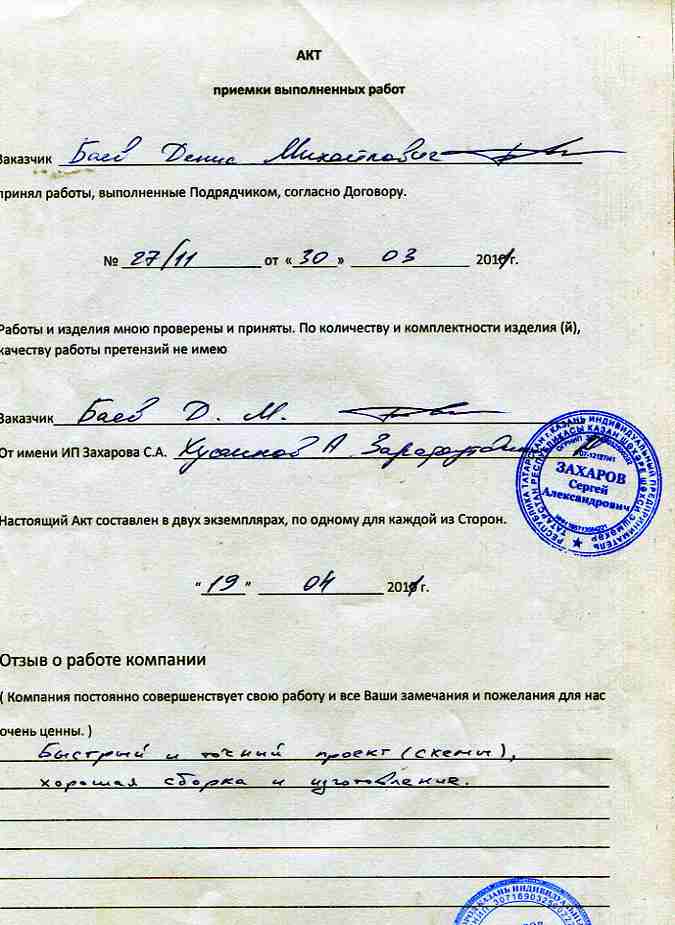 АКТ
приемки выполненных работ
Заказчик Баев Денис Михайлович
принял работы, выполненные Подрядчиком, согласно Договору.
№ 27/11 от «30» 03 2011г.
Работы и изделия мною проверены и приняты. По количеству и комплектности изделия (й),
качеству работы претензий не имею
Заказчик Баев Д. М.
От имени ИП Захарова С.А. Хусаинов А
ЗАХАРОВ
Сергей
Александрович
Настоящий Акт составлен в двух экземплярах, по одному для каждой из Сторон.
"19" 04 2011г.
Отзыв о работе компании
( Компания постоянно совершенствует свою работу и все Ваши замечания и пожелания для нас
очень ценны. )
Быстрый и точный проект (схемы),
хорошая сборка и изготовление.